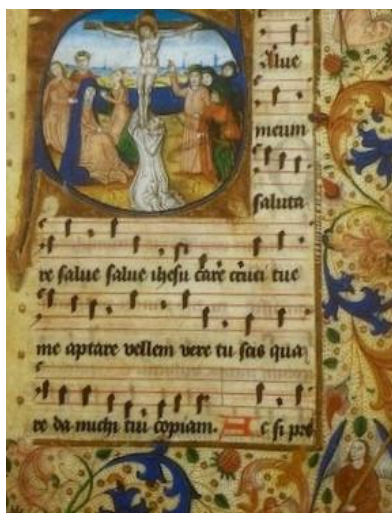 alue
meum
saluta
re salue salue ihesu care cruci tue
me aptare vellem vere tu scis qua
re da michi tui copiam. A c si pres